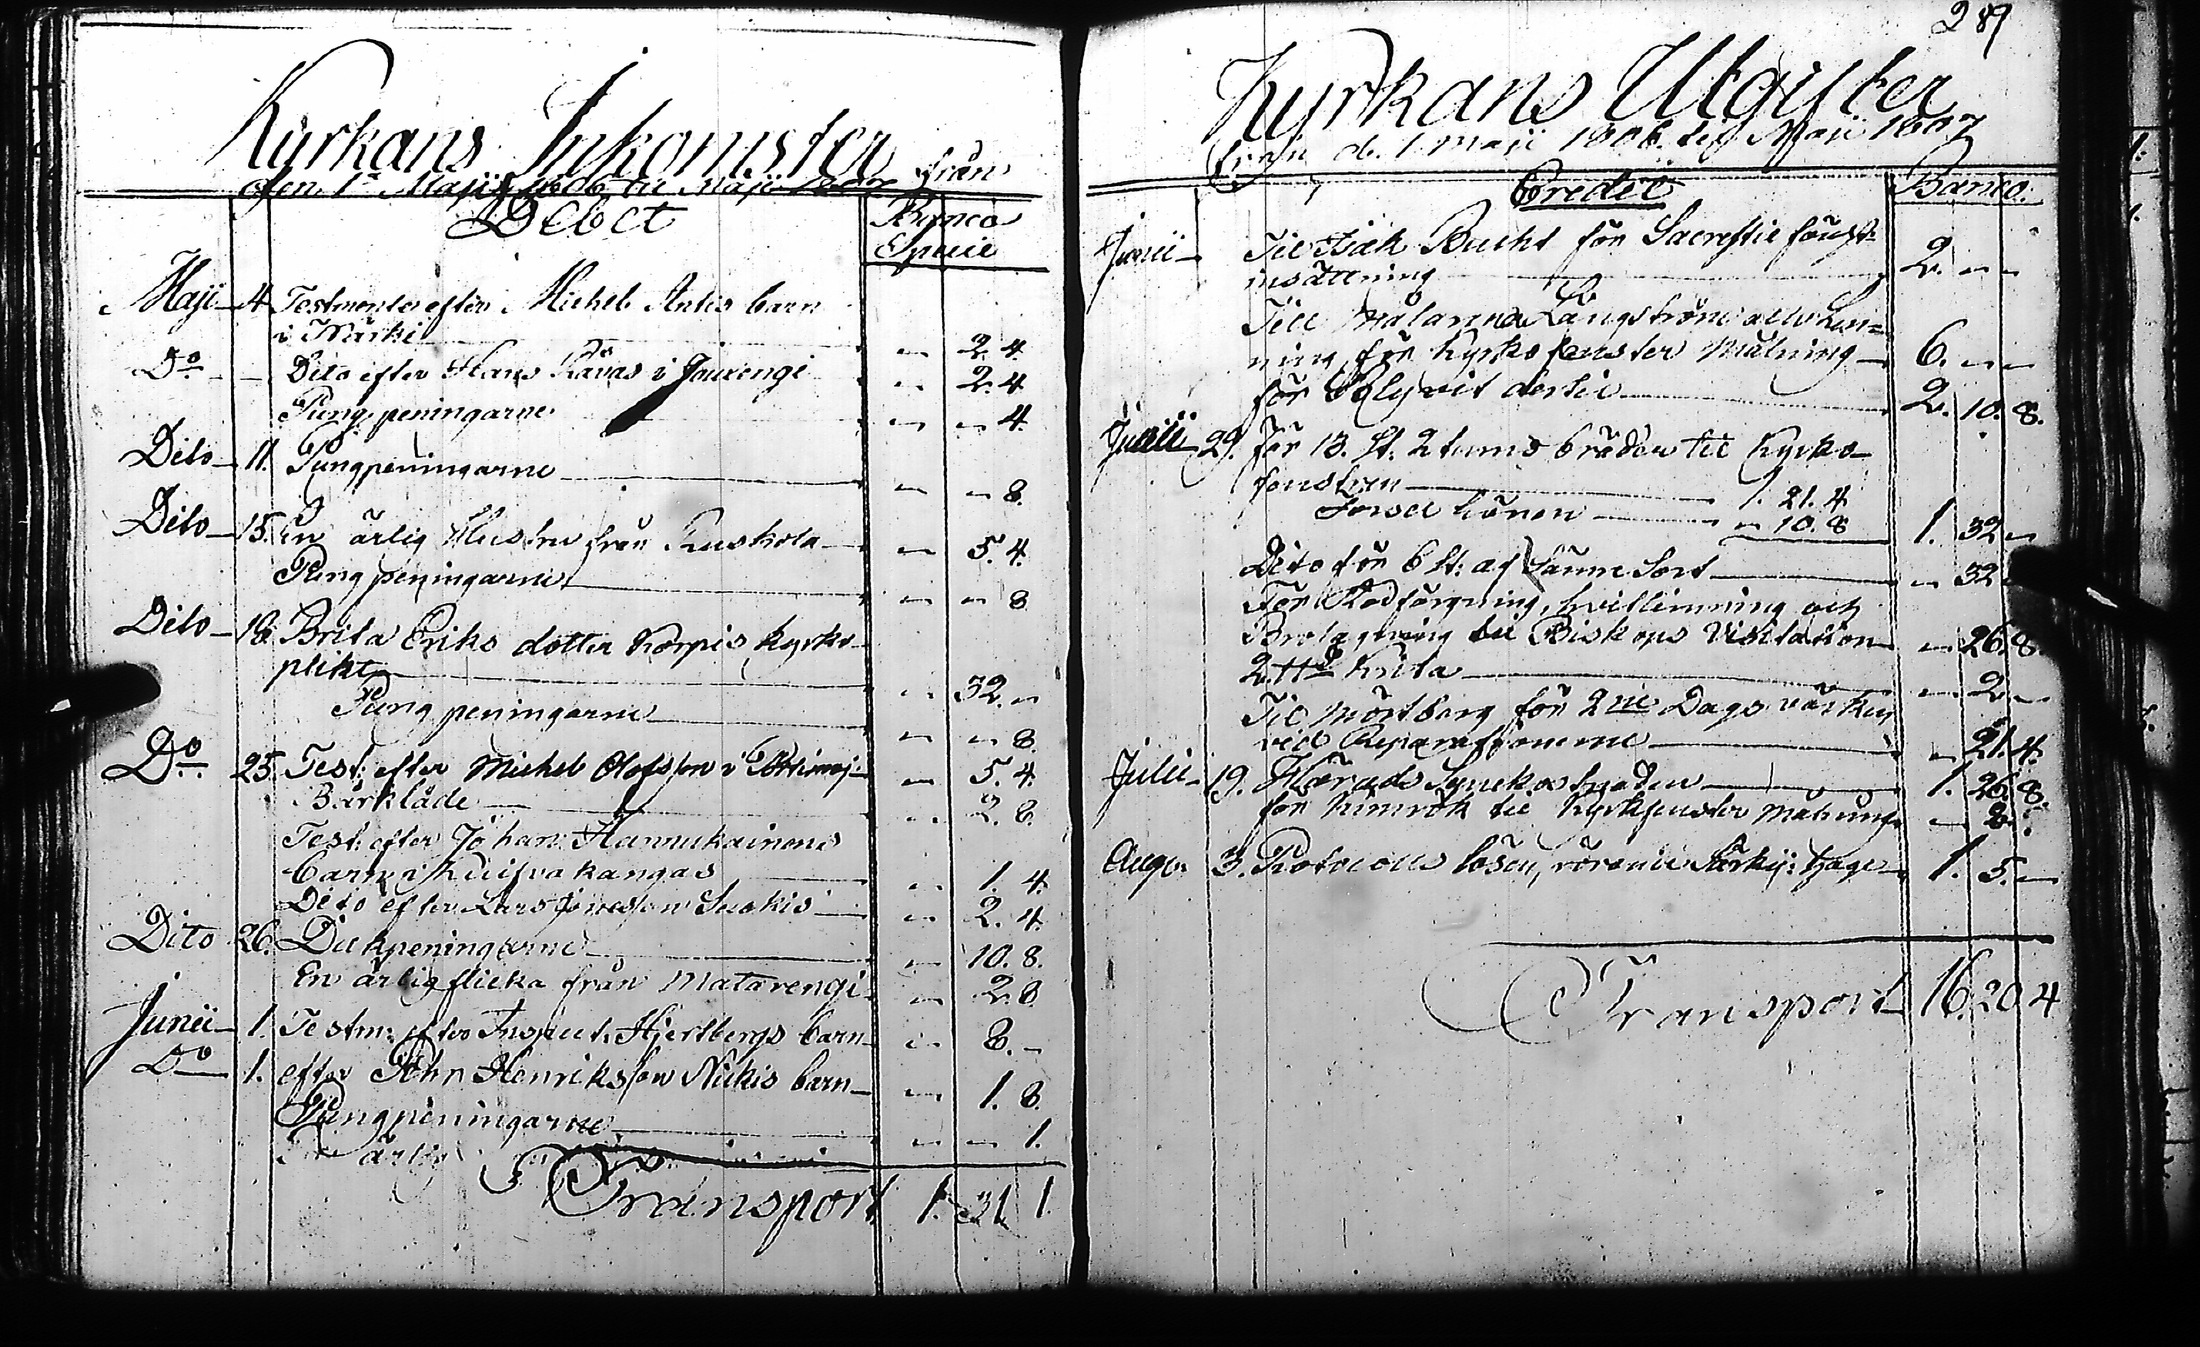 Kyrkans Inkomster från
den 1a Maji 1806 til Maji 1807
Debet
Banco
Specie
Maji 4 Testmente efter Michel Antis barn
i Närki 2. 4
Do Dito efter Hans Råvas i Juoxengi 2. 4
Pung peningarne 4
Dito 11. Pungpeningarne 8.
Dito 15. En ärlig Hustru från Ruskola 5. 4.
Pung peningarne 8
Dito 18. Brita Eriks dotter Korpis kyrko
plikt 32.
Pung peningarne 8.
Do 25. Test: efter Michel Olofsson i
Bårkläde 2. 8.
5. 4.
Test: efter Johan Hannukainens
barn i Kuifvakangas 1. 4.
Dito efter Lars Jönesson Suokis 2. 4.
Dito 26. Diskpeningarne 10. 8.
En ärlig flicka från Matarengi 2. 8
Junii 1. Testm: efter Inspect. Hjertbergs barn 8.
Do 1. efter John Henriksson Nickis barn 1. 8.
Pungpeningarne 1.
ärlig
Transport 1. 31 1.
289
Kyrkans Utgifter
från d. 1. Maji 1806 til Maji 1807
Credit Banco.
Junii Til Isak Bucht för Sacrestie fönst=
insättning 2.
Till Målarne Långström
ning för Kyrko fenster Målning 6.
för Blyvit dertil 2. 10. 8.
Junii 29. för 13. st. 2 tums bräder til Kyrko
fönstren 1. 21. 4
Forsel lönen 10. 8 1. 32
Dito för 6 st: af samme Sort 32
För Rödfärgning, hvitlimning och
Brolägning til Biskops Visitation 26. 8.
2 ttt Krita 2.
Til Mörtberg för 2ne Dags värken
vid Reparationerne 21. 4.
Julii 19. Härads Synekostnaden 1. 26. 8.
för Kimrök til Kyrkfenster Målning 2.
Aug. 3. Protocolls lösen, rörande 1. 5.
Transport 16. 20. 4